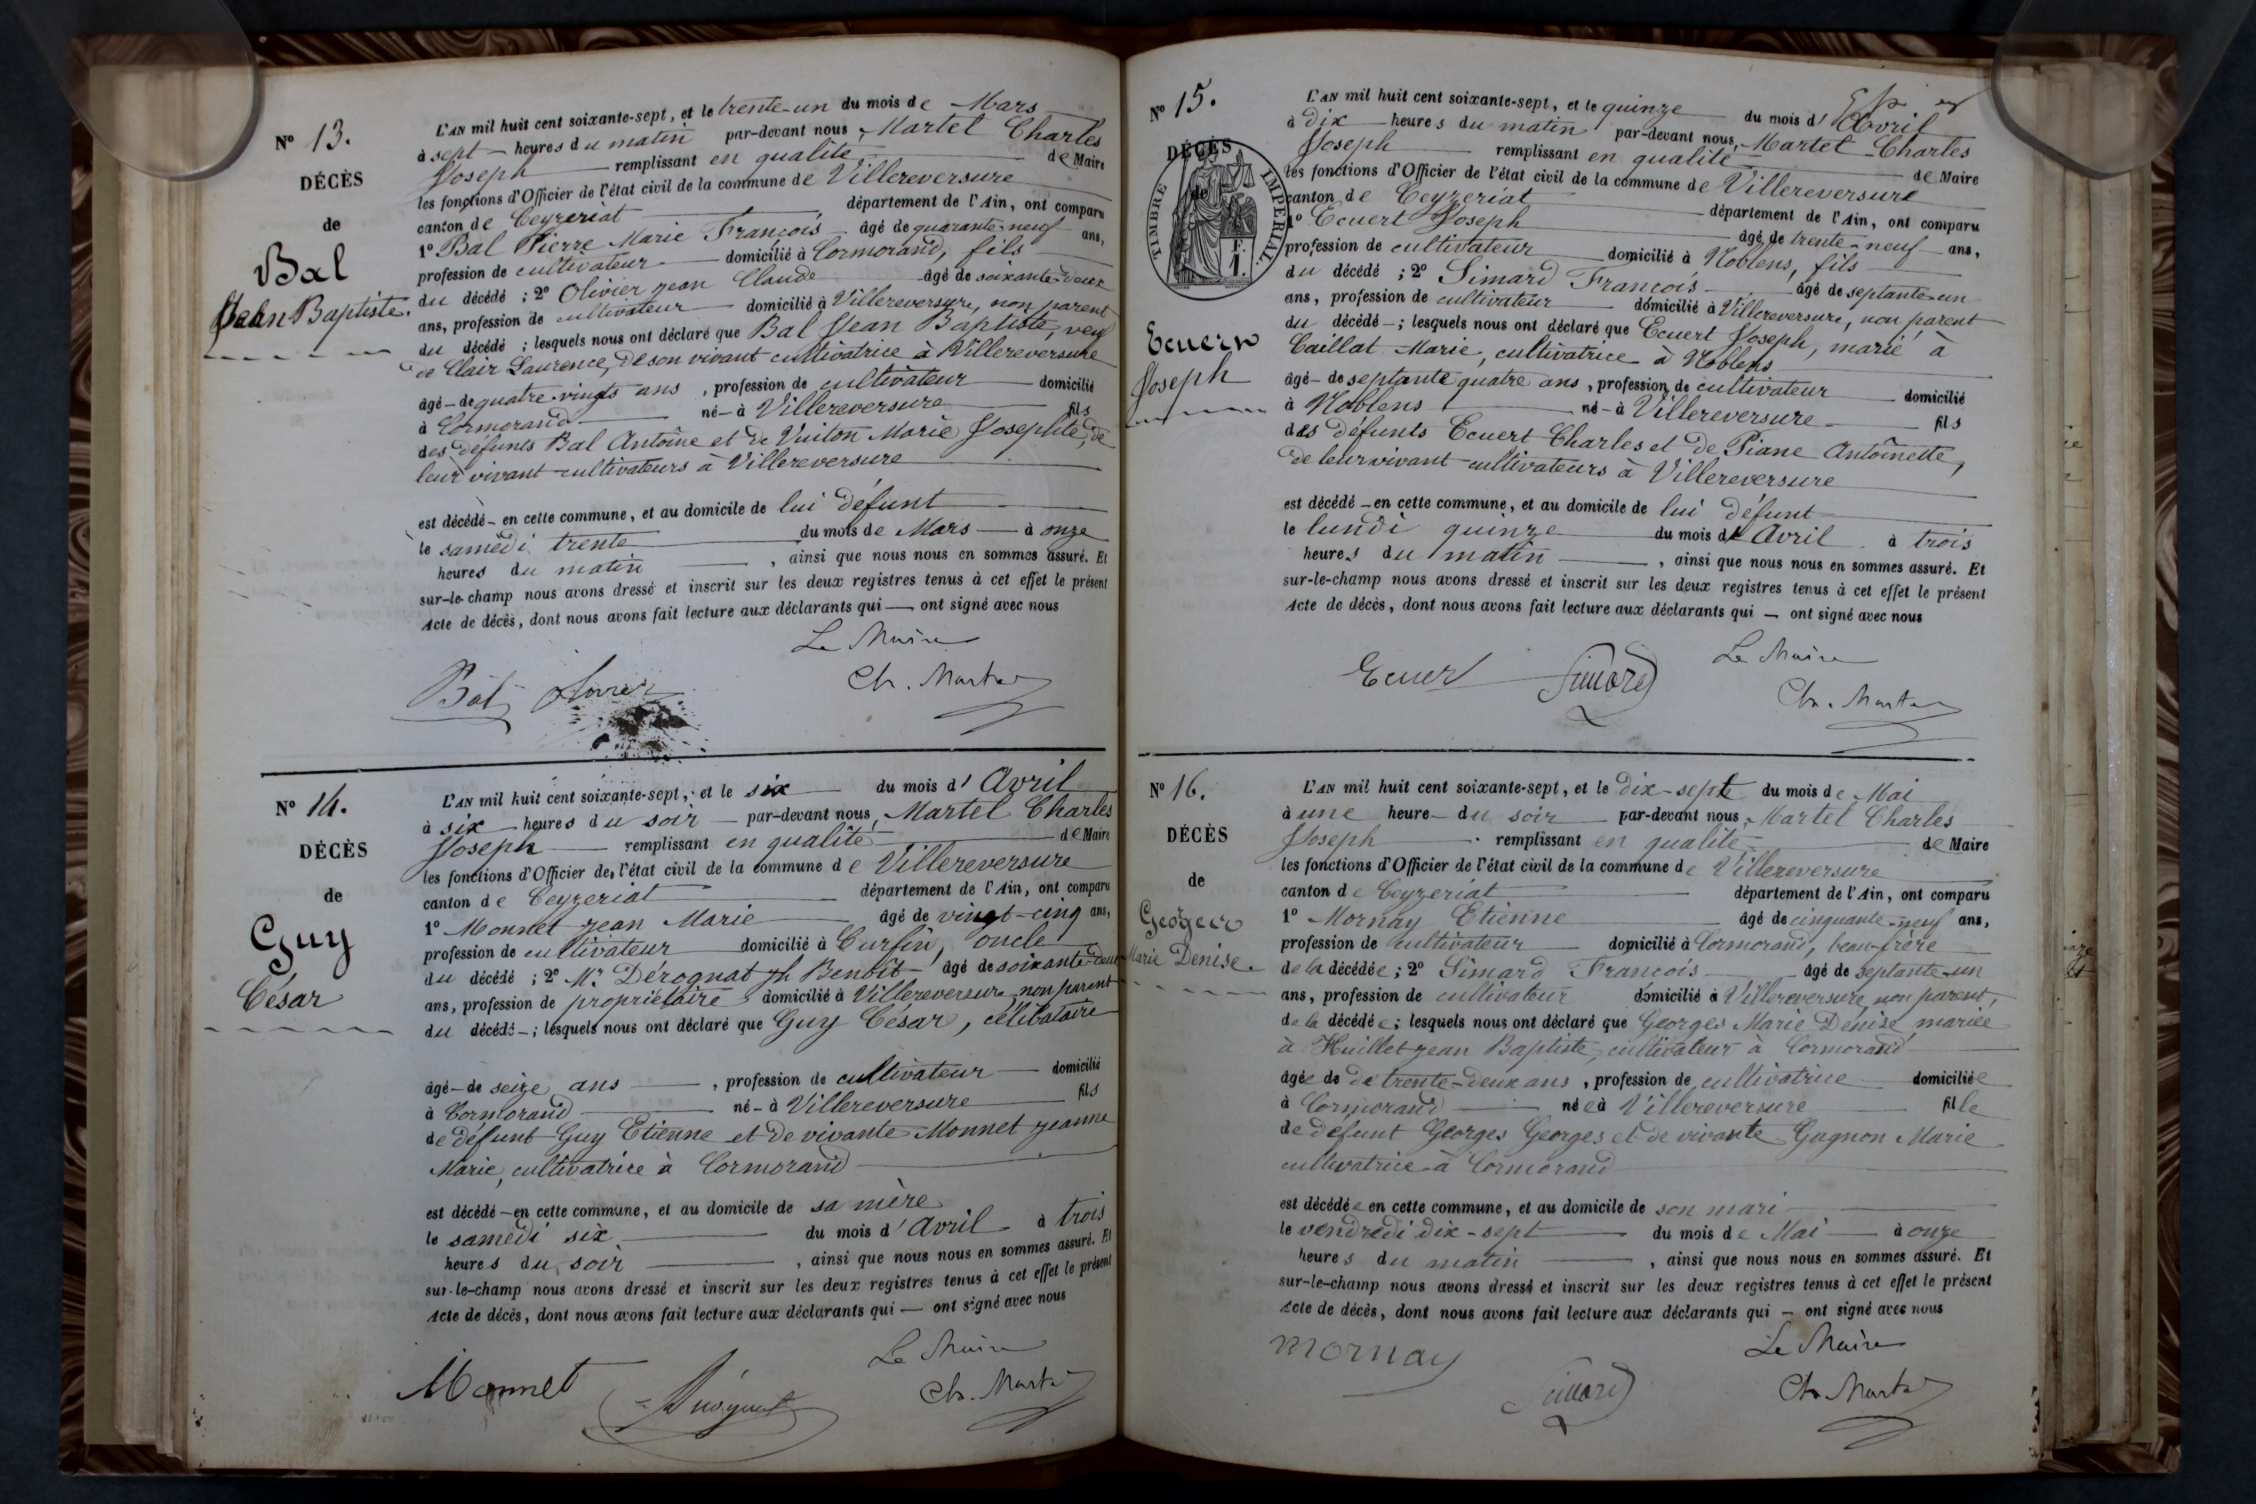 N° 13.
DÉCÈS
de
Bal
Jean Baptiste.
L'AN mil huit cent soixante-sept, et le trente-un du mois de Mars
à sept heures du matin par-devant nous, Martel Charles
Joseph remplissant en qualité de Maire
les fonctions d'Officier de l'état civil de la commune de Villereversure
canton de Ceyzeriat département de l'Ain, ont comparu
1° Bal Pierre Marie François âgé de quarante-neuf ans,
profession de cultivateur domicilié à Cormorand, fils
du décédé ; 2° Olivier jean Claude âgé de soixante-deux
ans, profession de cultivateur domicilié à Villereversure, non parent
du décédé ; lesquels nous ont déclaré que Bal Jean Baptiste, veuf
de Clair Laurence, de son vivant cultivatrice à Villereversure
âgé de quatre-vingts ans, profession de cultivateur domicilié
à Cormorand né à Villereversure fils
des défunts Bal Antoine et de Vuiton Marie Josephte, de
leur vivant cultivateurs à Villereversure
est décédé en cette commune, et au domicile de lui défunt
le samedi trente du mois de Mars à onze
heures du matin, ainsi que nous nous en sommes assuré. Et
sur-le-champ nous avons dressé et inscrit sur les deux registres tenus à cet effet le présent
Acte de décès, dont nous avons fait lecture aux déclarants qui ont signé avec nous
Le Maire
Bal Olivier Ch. Martel
N° 14.
DÉCÈS
de
Guy
César
L'AN mil huit cent soixante-sept, et le six du mois d'Avril
à six heures du soir par-devant nous, Martel Charles
Joseph remplissant en qualité de Maire
les fonctions d'Officier de l'état civil de la commune de Villereversure
canton de Ceyzeriat département de l'Ain, ont comparu
1° Monnet jean Marie âgé de vingt-cinq ans,
profession de cultivateur domicilié à Curfin, oncle
du décédé ; 2° Mr Derognat Jh Benoît âgé de soixante-deux
ans, profession de propriétaire domicilié à Villereversure, non parent
du décédé ; lesquels nous ont déclaré que Guy César, célibataire
âgé de seize ans, profession de cultivateur domicilié
à Cormorand né à Villereversure fils
de défunt Guy Etienne et de vivante Monnet jeanne
Marie, cultivatrice à Cormorand
est décédé en cette commune, et au domicile de sa mère
le samedi six du mois d'Avril à trois
heures du soir, ainsi que nous nous en sommes assuré. Et
sur-le-champ nous avons dressé et inscrit sur les deux registres tenus à cet effet le présent
Acte de décès, dont nous avons fait lecture aux déclarants qui ont signé avec nous
Le Maire
Monnet Dérognat Ch. Martel
N° 15.
DÉCÈS
de
TIMBRE IMPERIAL.
Ecuert
Joseph
L'AN mil huit cent soixante-sept, et le quinze du mois d'Avril
à dix heures du matin par-devant nous, Martel Charles
Joseph remplissant en qualité de Maire
les fonctions d'Officier de l'état civil de la commune de Villereversure
canton de Ceyzeriat département de l'Ain, ont comparu
1° Ecuert Joseph âgé de trente-neuf ans,
profession de cultivateur domicilié à Noblens, fils
du décédé ; 2° Simard François âgé de septante-un
ans, profession de cultivateur domicilié à Villereversure, non parent
du décédé ; lesquels nous ont déclaré que Ecuert Joseph, marié à
Caillat Marie, cultivatrice à Noblens
âgé de septante quatre ans, profession de cultivateur domicilié
à Noblens né à Villereversure fils
des défunts Ecuert Charles et de Piane Antoinette,
de leur vivant cultivateurs à Villereversure
est décédé en cette commune, et au domicile de lui défunt
le lundi quinze du mois d'Avril à trois
heures du matin, ainsi que nous nous en sommes assuré. Et
sur-le-champ nous avons dressé et inscrit sur les deux registres tenus à cet effet le présent
Acte de décès, dont nous avons fait lecture aux déclarants qui ont signé avec nous
Le Maire
Ecuer Simard Ch. Martel
N° 16.
DÉCÈS
de
Georges
Marie Denise.
L'AN mil huit cent soixante-sept, et le dix-sept du mois de Mai
à une heure du soir par-devant nous, Martel Charles
Joseph remplissant en qualité de Maire
les fonctions d'Officier de l'état civil de la commune de Villereversure
canton de Ceyzeriat département de l'Ain, ont comparu
1° Mornay Etienne âgé de cinquante-neuf ans,
profession de cultivateur domicilié à Cormorand, beau-frère
de la décédée ; 2° Simard François âgé de septante-un
ans, profession de cultivateur domicilié à Villereversure non parent,
de la décédée ; lesquels nous ont déclaré que Georges Marie Denise mariée
à Huillet jean Baptiste, cultivateur à Cormorand
âgée de de trente-deux ans, profession de cultivatrice domiciliée
à Cormorand née à Villereversure fille
de défunt Georges Georges et de vivante Gagnon Marie
cultivatrice à Cormorand
est décédée en cette commune, et au domicile de son mari
le vendredi dix-sept du mois de Mai à onze
heures du matin, ainsi que nous nous en sommes assuré. Et
sur-le-champ nous avons dressé et inscrit sur les deux registres tenus à cet effet le présent
Acte de décès, dont nous avons fait lecture aux déclarants qui ont signé avec nous
Le Maire
mornay Simard Ch. Martel